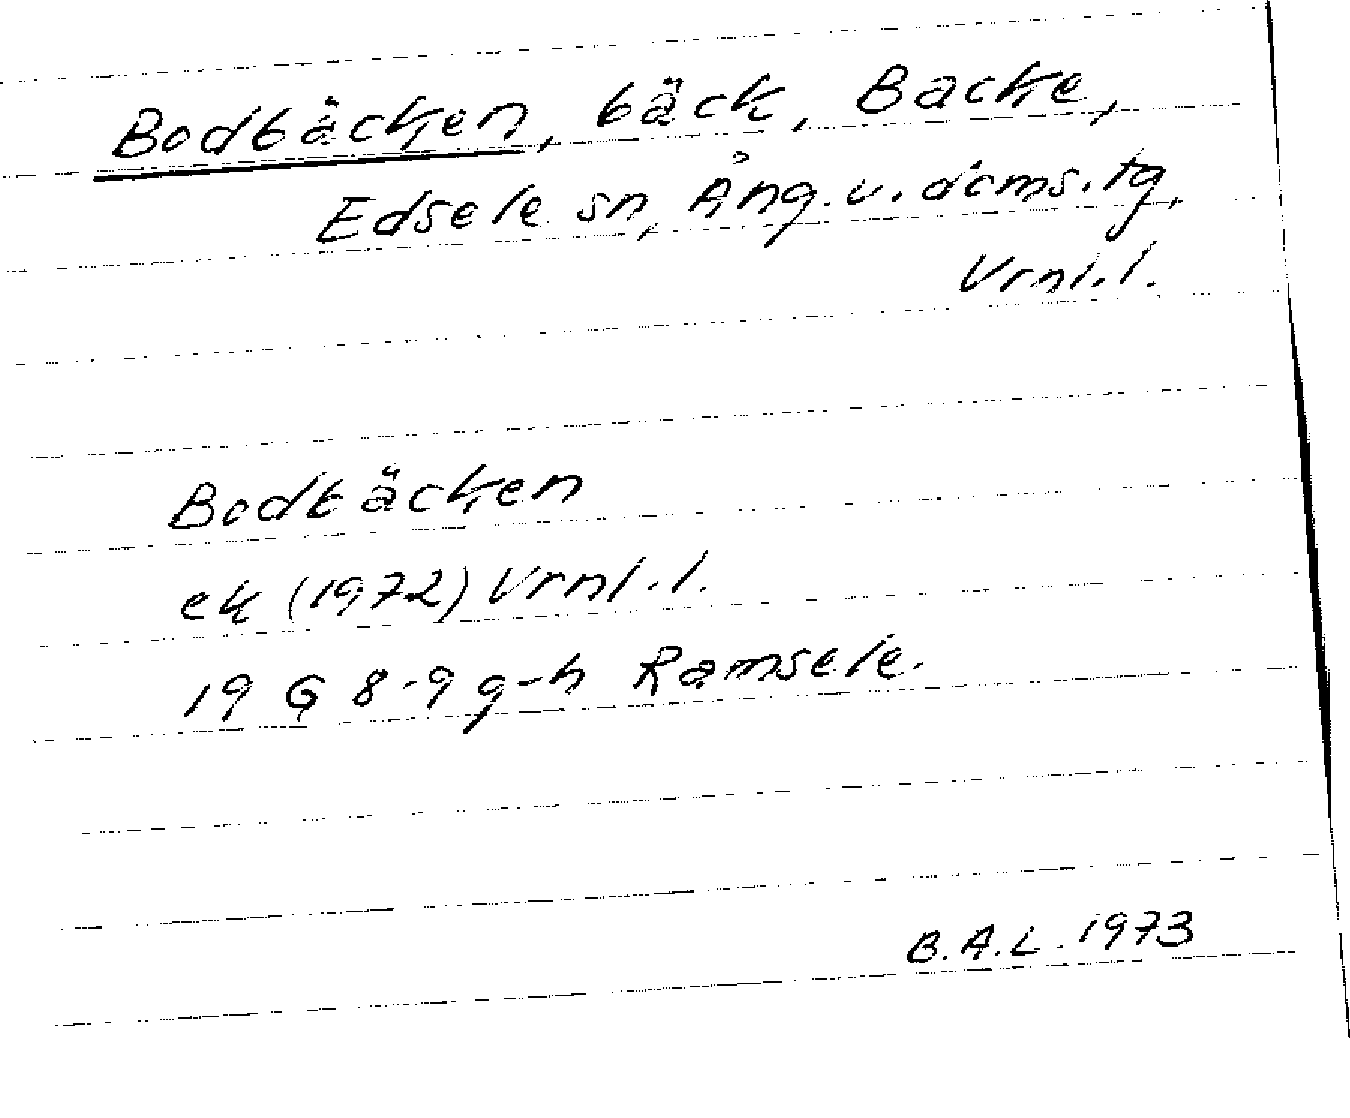 Bodbäcken, bäck, Backe,
Edsele sn, Ång. v. doms. tg,
Vrnl. l.
Bodbäcken
ek (1972) Vrnl. l.
19 G 8-9 g-h Ramsele.
B.A.L. 1973